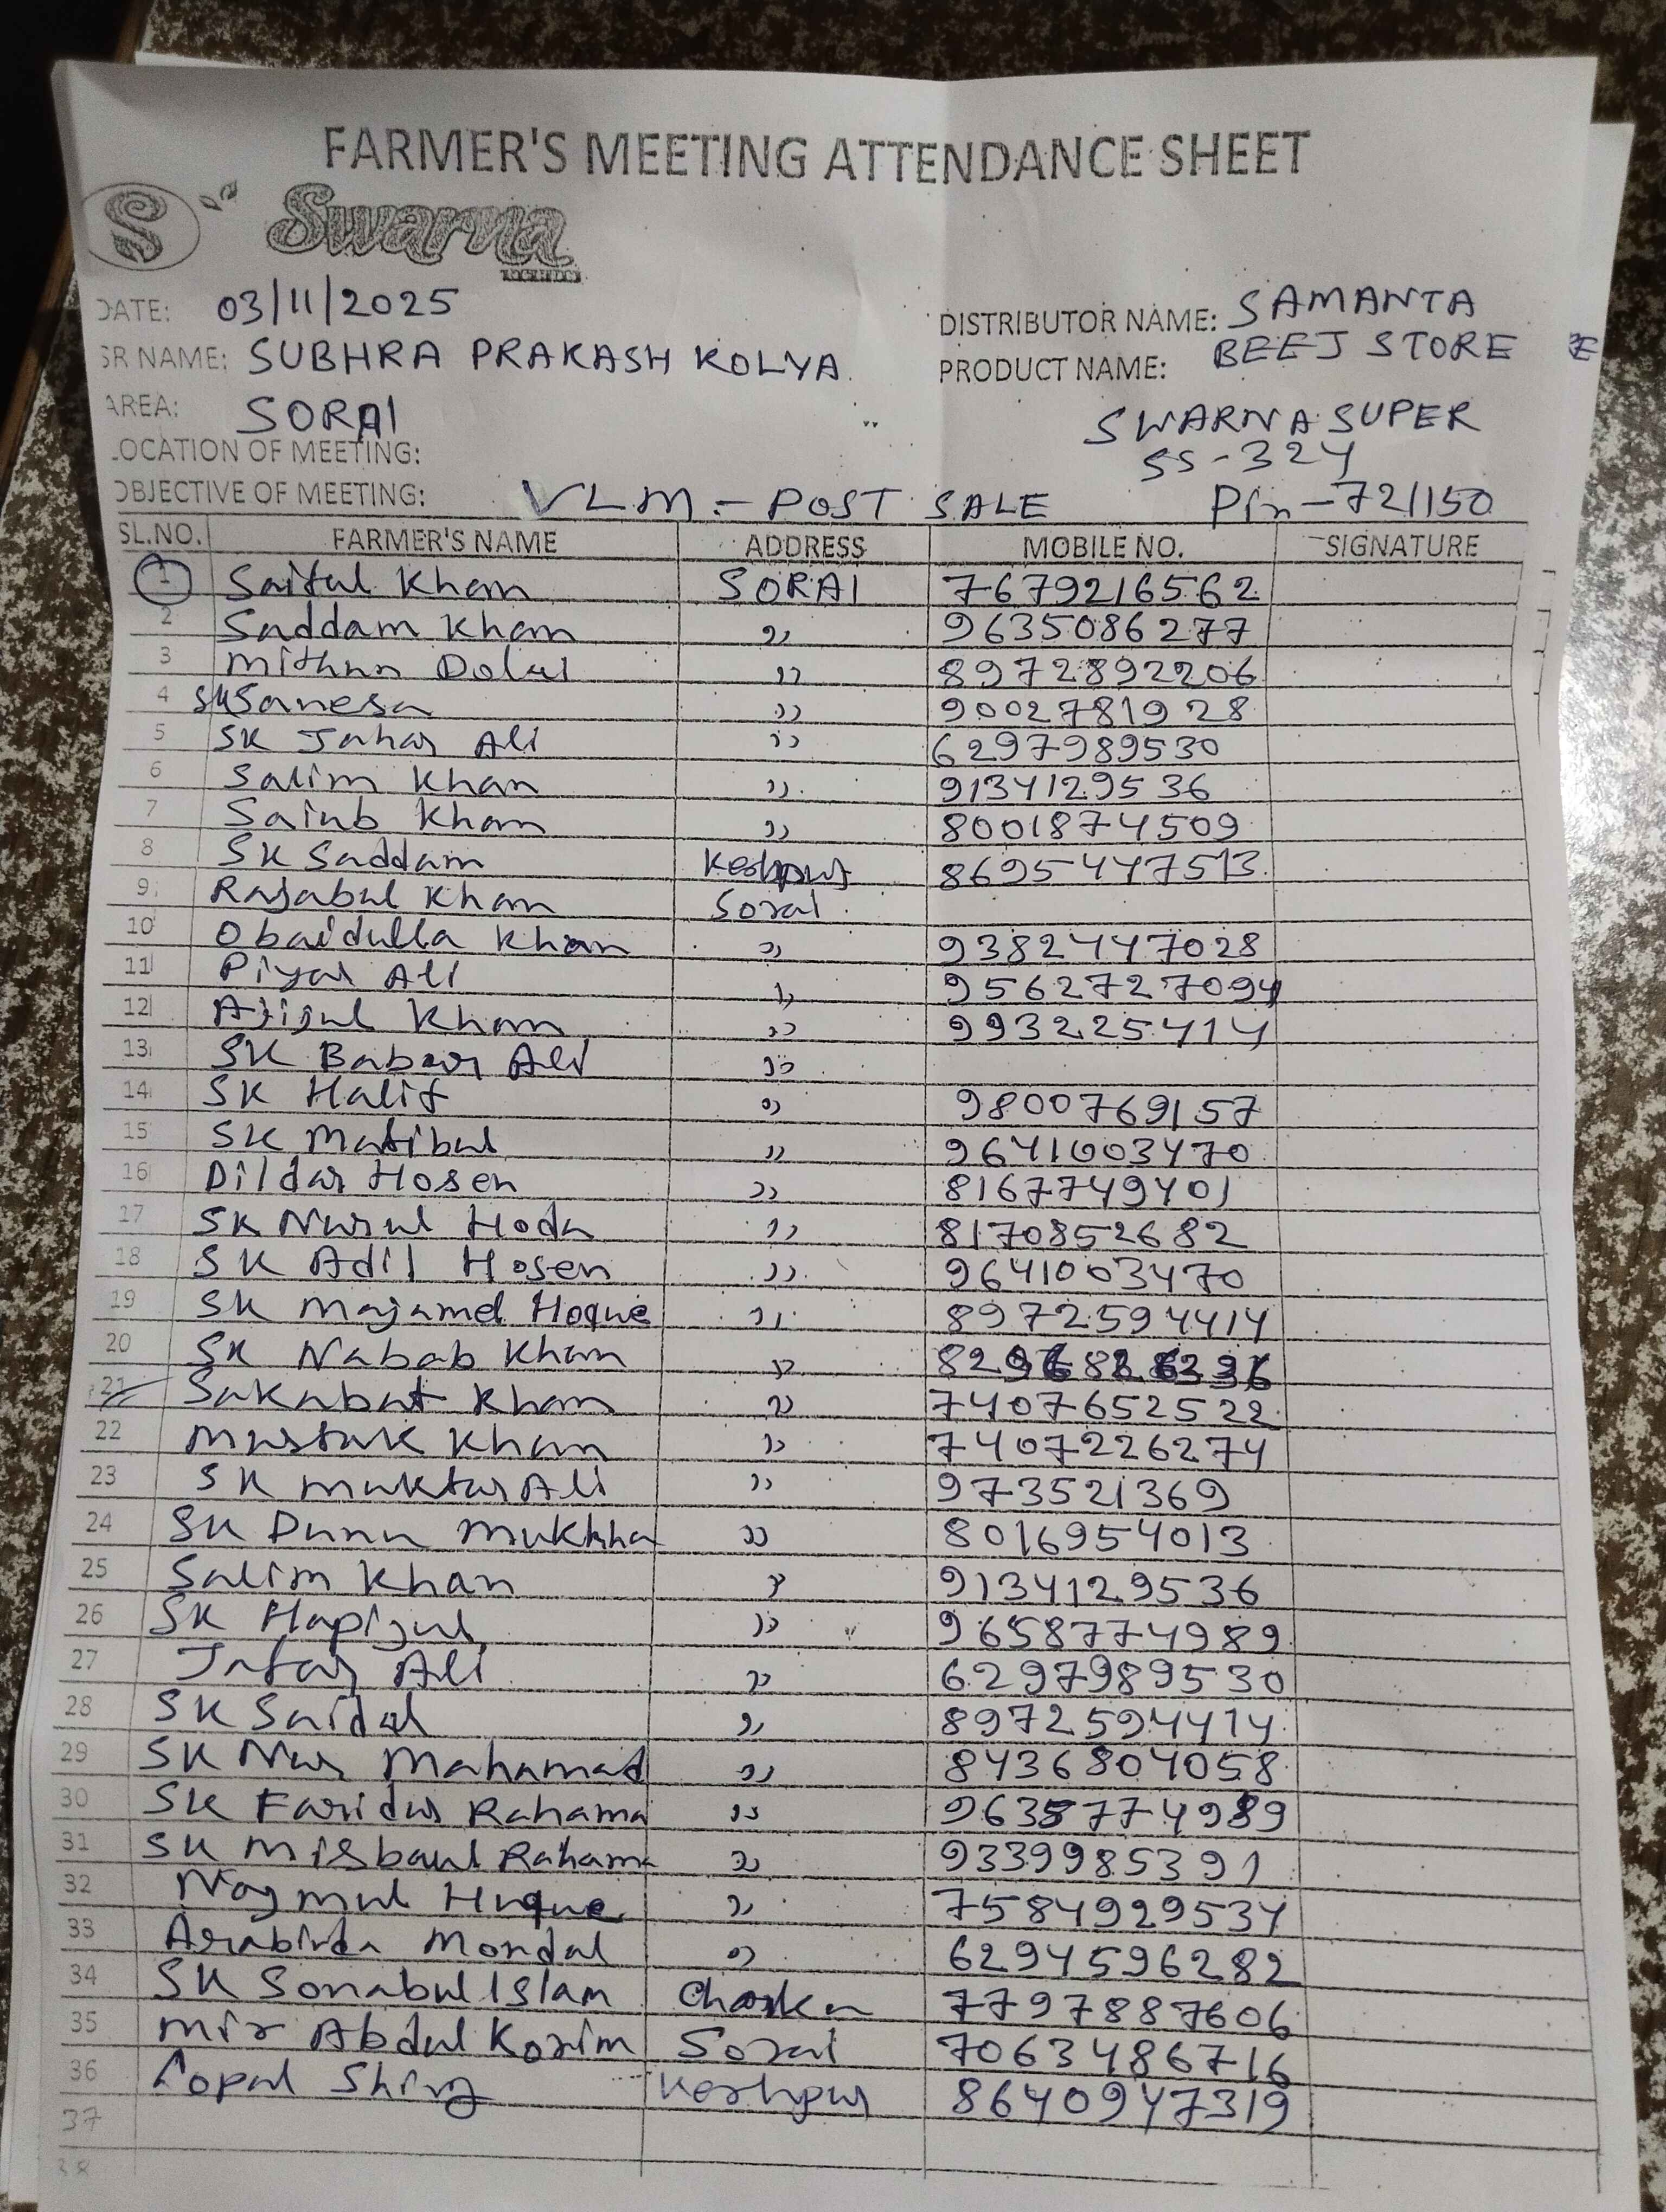 FARMER'S MEETING ATTENDANCE SHEET
S Swarna
DATE: 03/11/2025
DISTRIBUTOR NAME: SAMANTA
BEEJ STORE
SR NAME: SUBHRA PRAKASH KOLYA
PRODUCT NAME:
AREA: SORAI
SWARNA SUPER
LOCATION OF MEETING:
SS-324
OBJECTIVE OF MEETING: VLM - POST SALE Pin-721150
SL.NO. FARMER'S NAME ADDRESS MOBILE NO. SIGNATURE
1 Saiful Khan SORAI 7679216562
2 Saddam Khan ,, 9635086277
3 Mithun Dolui ,, 8972892206
4 SK Sanesa ,, 9002781928
5 SK Jahar Ali ,, 6297989530
6 Salim Khan ,, 9134129536
7 Sainb Khan ,, 8001874509
8 SK Saddam Keshpur 8695447513
9 Rajabul Khan Sorai
10 Obaidulla Khan ,, 9382447028
11 Piyar Ali ,, 9562727094
12 Ajijul Khan ,, 993225414
13 SK Babar Ali ,,
14 SK Halif ,, 9800769157
15 SK Matibul ,, 9641003470
16 Dildar Hosen ,, 8167749401
17 SK Nurul Hoda ,, 8170852682
18 SK Adil Hosen ,, 9641003470
19 SK Majamel Hoque ,, 8972594414
20 SK Nabab Khan ,,
21 Sakabat Khan ,, 7407652522
22 Mustak Khan ,, 7407226274
23 SK Muktar Ali ,, 973521369
24 SK Dunu Mukhha ,, 8016954013
25 Salim Khan ,, 9134129536
26 SK Hapijul ,, 9658774989
27 Jafar Ali ,, 6297989530
28 SK Saidul ,, 8972594414
29 SK Nur Mahamad ,, 8436804058
30 SK Faridur Rahama ,, 9638774989
31 SK Misbaul Rahama ,, 9339985391
32 Najmul Huque ,, 7584929534
33 Arabinda Mondal ,, 6294596282
34 SK Sonabul Islam 7797887606
35 Mir Abdul Korim Sorai 7063486716
36 Gopal Shing Keshpur 8640947319
37
38